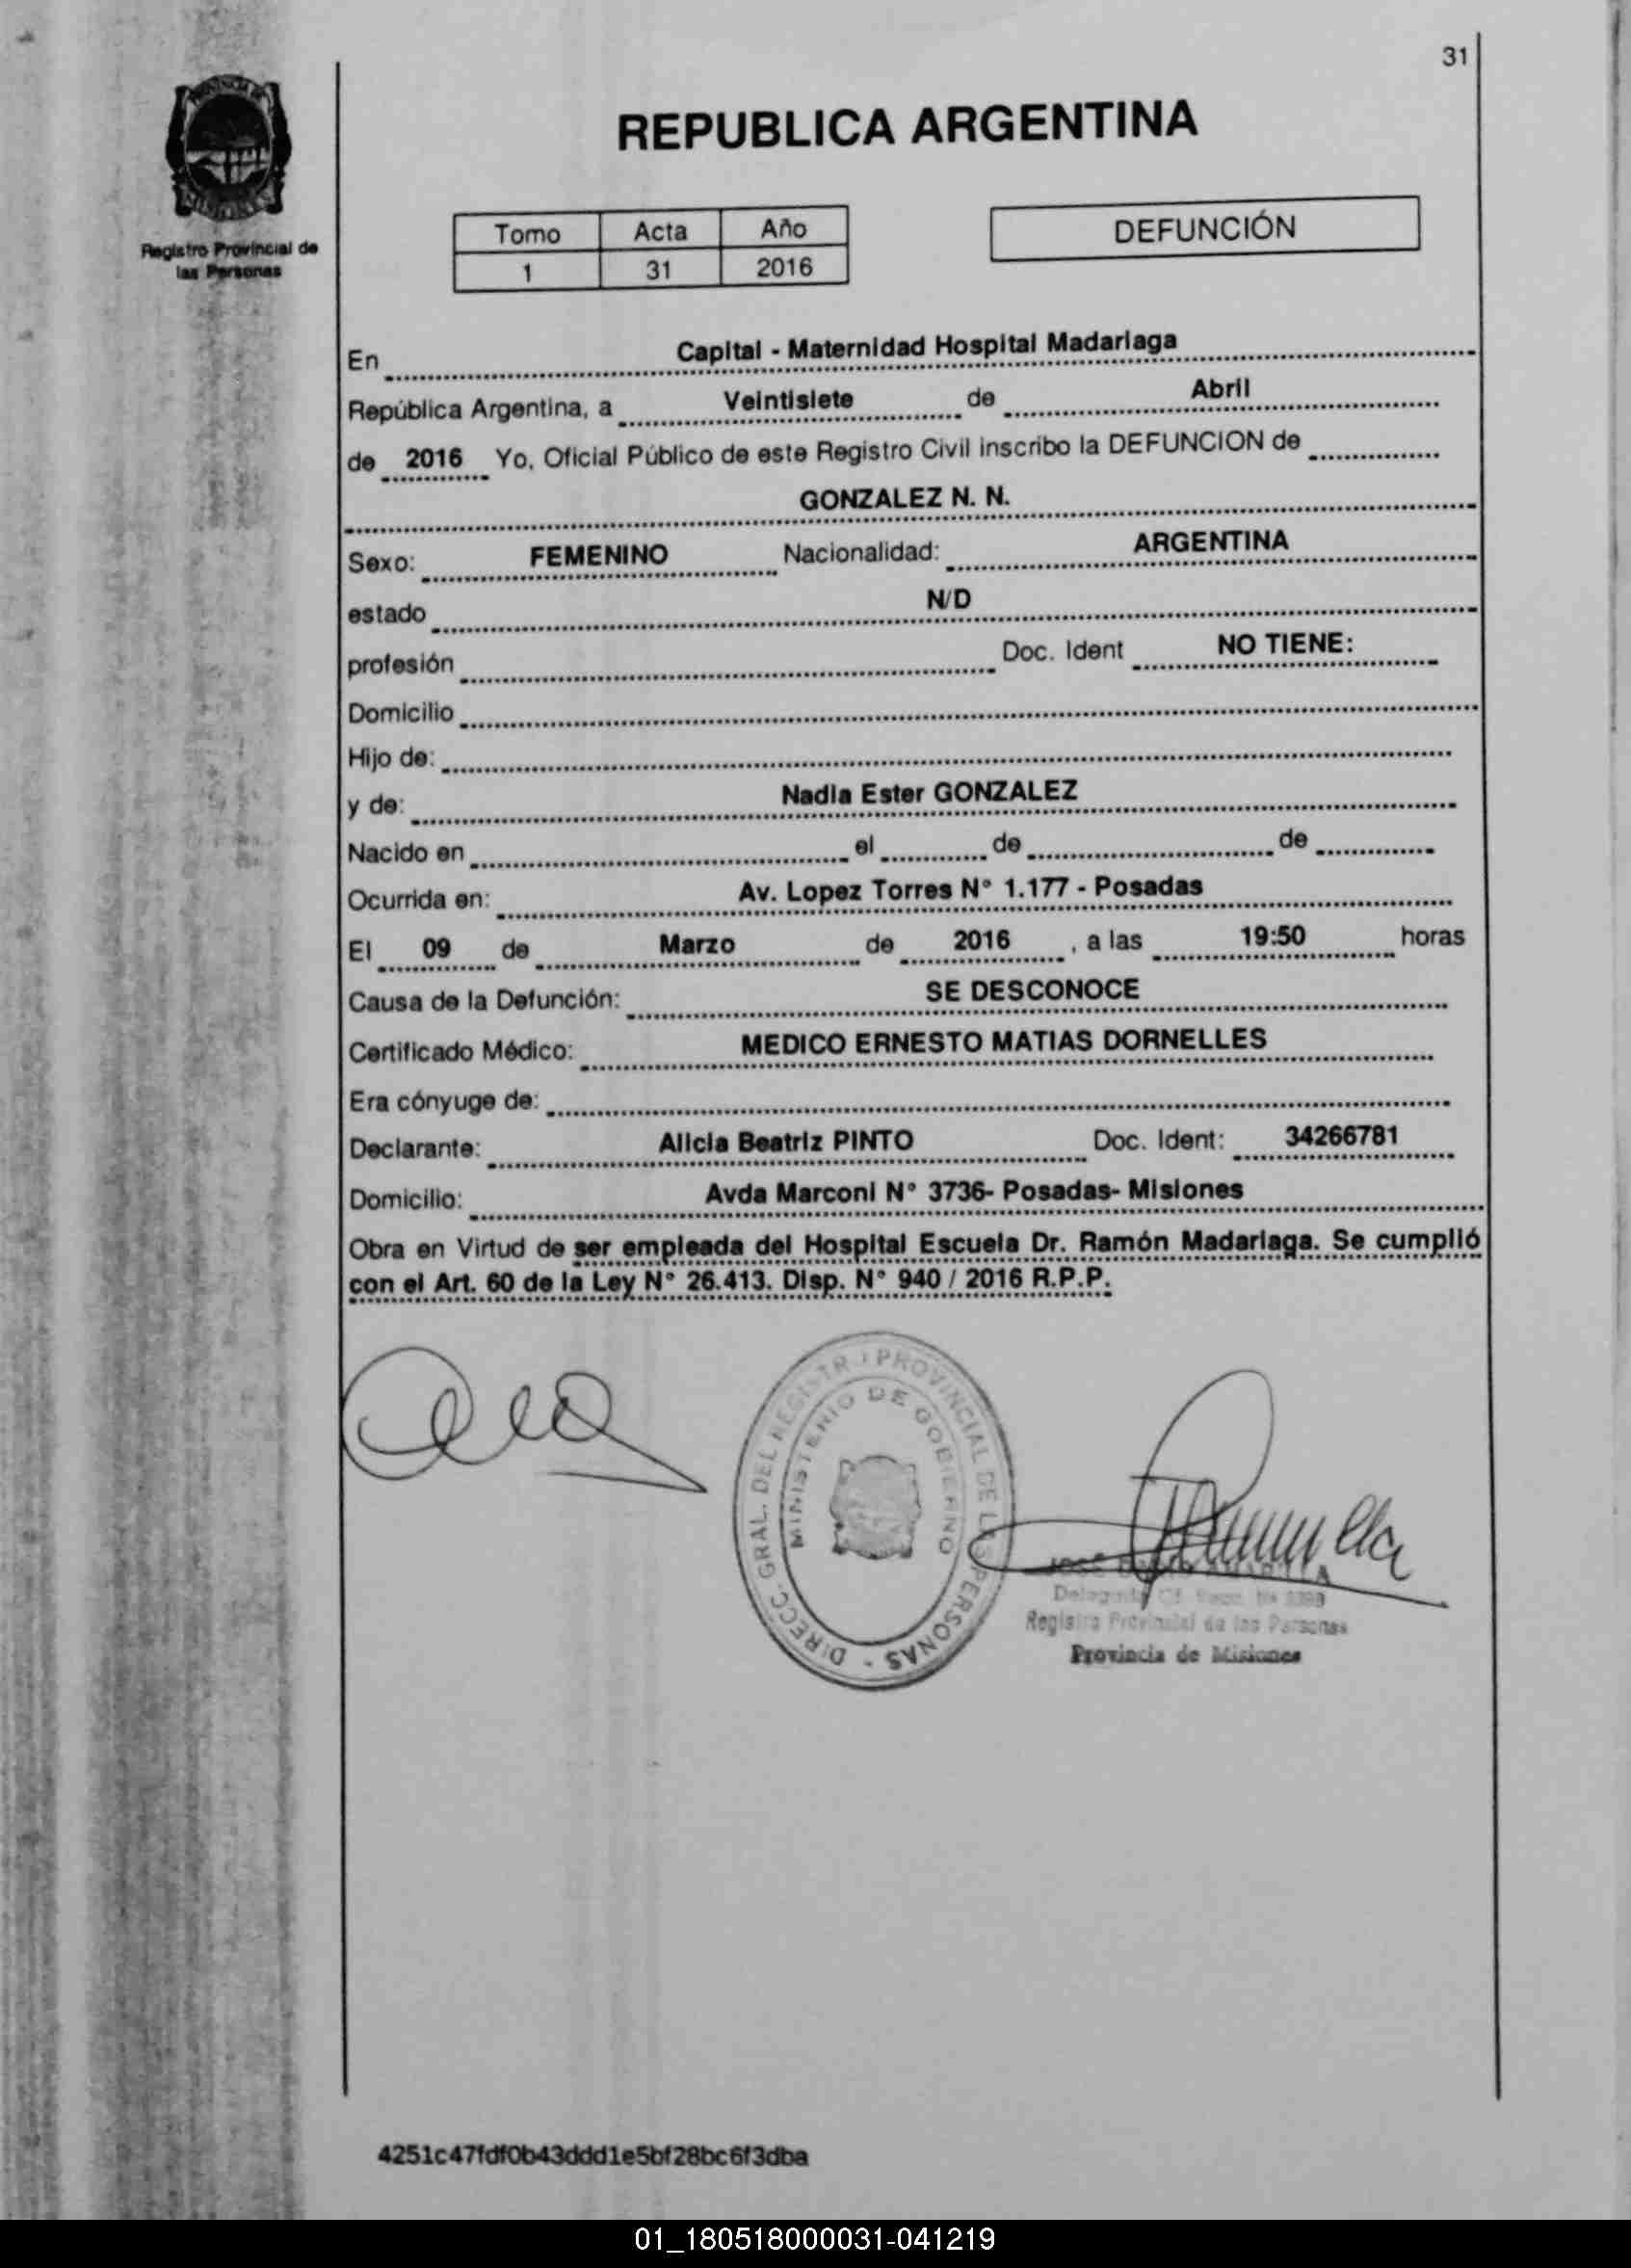 31
PROVINCIA DE
MISIONES
Registro Provincial de
las Personas
REPUBLICA ARGENTINA
Tomo Acta Año
1 31 2016
DEFUNCIÓN
En Capital - Maternidad Hospital Madariaga
República Argentina, a Veintisiete de Abril
de 2016 Yo, Oficial Público de este Registro Civil inscribo la DEFUNCION de
GONZALEZ N. N.
Sexo: FEMENINO Nacionalidad: ARGENTINA
estado N/D
profesión Doc. Ident NO TIENE:
Domicilio
Hijo de:
y de: Nadia Ester GONZALEZ
Nacido en el de de
Ocurrida en: Av. Lopez Torres N° 1.177 - Posadas
El 09 de Marzo de 2016 , a las 19:50 horas
Causa de la Defunción: SE DESCONOCE
Certificado Médico: MEDICO ERNESTO MATIAS DORNELLES
Era cónyuge de:
Declarante: Alicia Beatriz PINTO Doc. Ident: 34266781
Domicilio: Avda Marconi N° 3736- Posadas- Misiones
Obra en Virtud de ser empleada del Hospital Escuela Dr. Ramón Madariaga. Se cumplió
con el Art. 60 de la Ley N° 26.413. Disp. N° 940 / 2016 R.P.P.
DIRECC. GRAL. DEL REGISTR PROVINCIAL DE LAS PERSONAS -
MINISTERIO DE GOBIERNO
JOSE
Registro Provincial de las Personas
Provincia de Misiones
4251c47fdf0b43ddd1e5bf28bc6f3dba
01_180518000031-041219